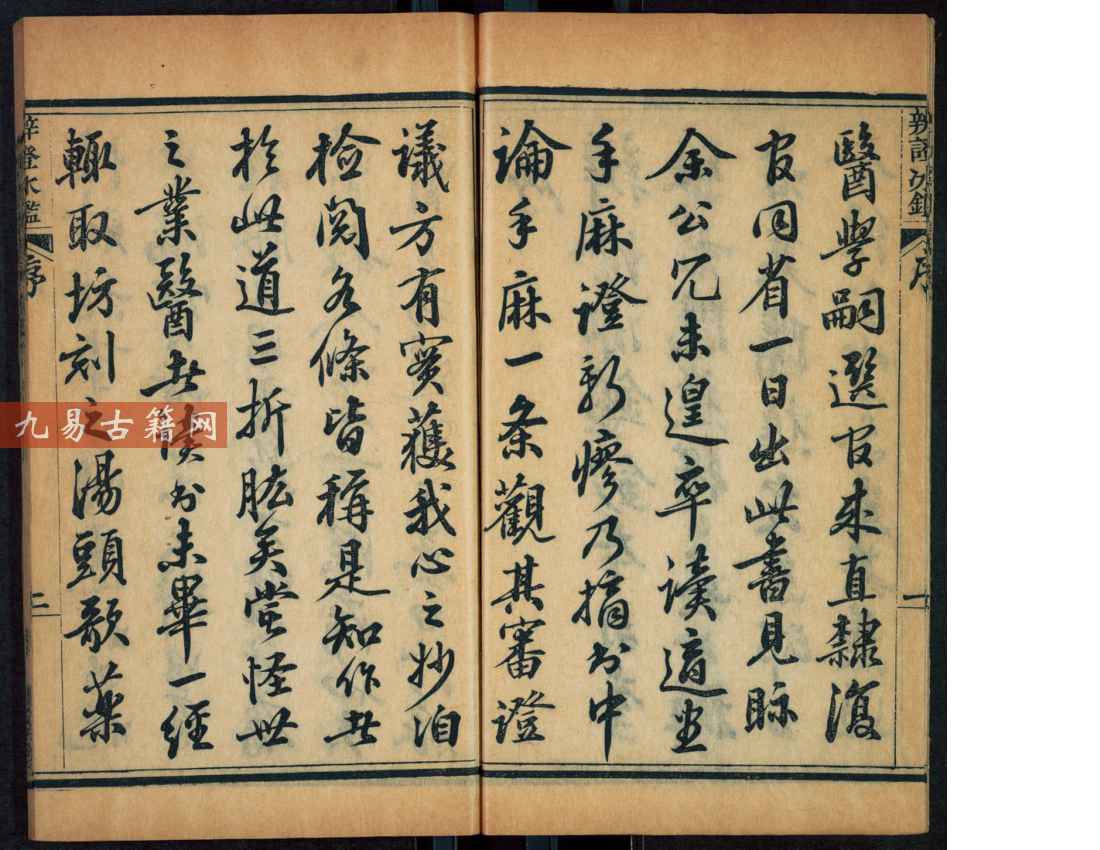 辨證冰鑑 序 一
醫學嗣選官來直隸復
官同省一日出此書見眎
余公冗未遑卒讀適坐
手麻證新瘳乃摘书中
論手麻一条觀其審證
議方有實獲我心之妙洎
檢閱各條皆稱是知作者
於此道三折肱矣嘗怪世
之業醫者讀书未畢一經
輒取坊刻之湯頭歌藥
辨證冰鑑 序 二
九易古籍网